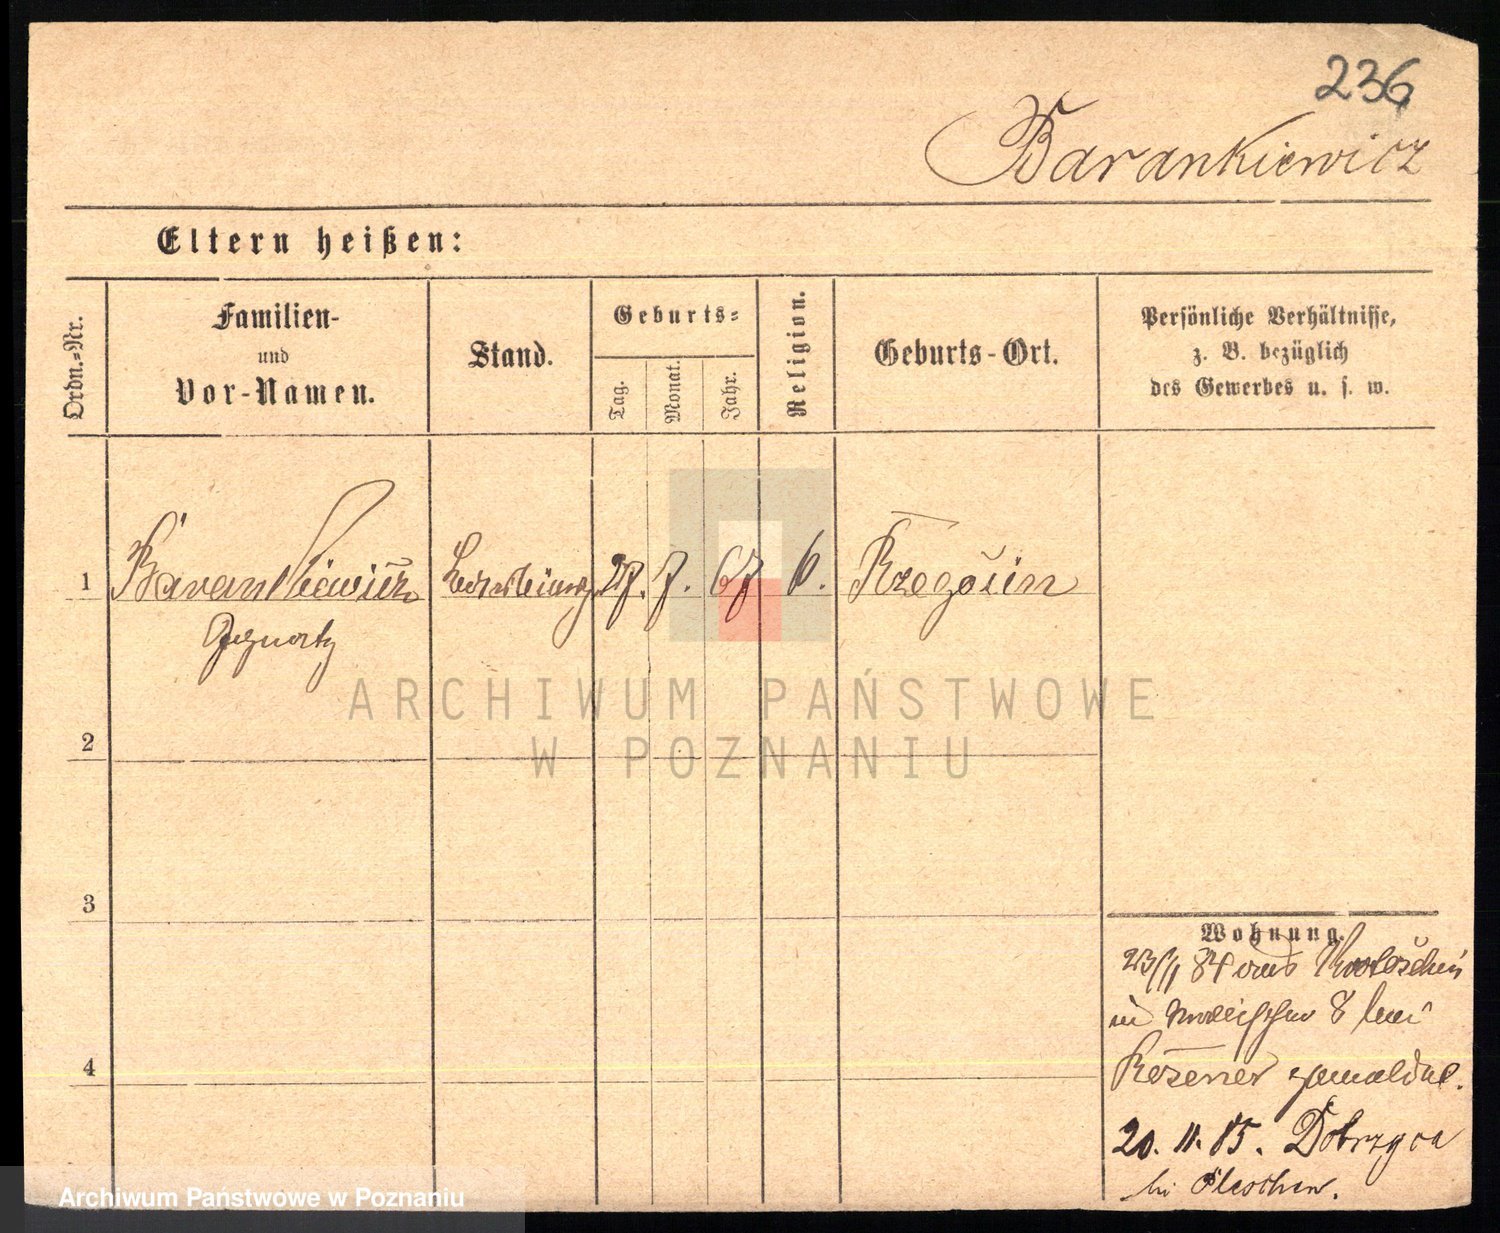 236
Barankiewicz
Eltern heißen:
Ordn.=Nr.
Familien-
und
Vor-Namen.
Stand.
Geburts=
Tag.
Monat.
Jahr.
Religion.
Geburts-Ort.
Persönliche Verhältnisse,
z. B. bezüglich
des Gewerbes u. s. w.
1
Barankiewicz
Ignatz
27.
7.
67
Rzegocin
ARCHIWUM PAŃSTWOWE
W POZNANIU
2
3
4
Wohnung.
84 aus
in 8 bei
gemeldet.
20. 11. 85. Dobrzyca
bei Pleschen.
Archiwum Państwowe w Poznaniu